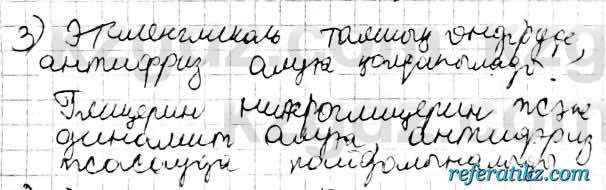 3) Этиленгликоль талшық өндіруде,
антифриз алуға қолданылады.
Глицерин нитроглицерин және
динамит алуға антифриз
жасауда пайдаланылады
referatikz.com